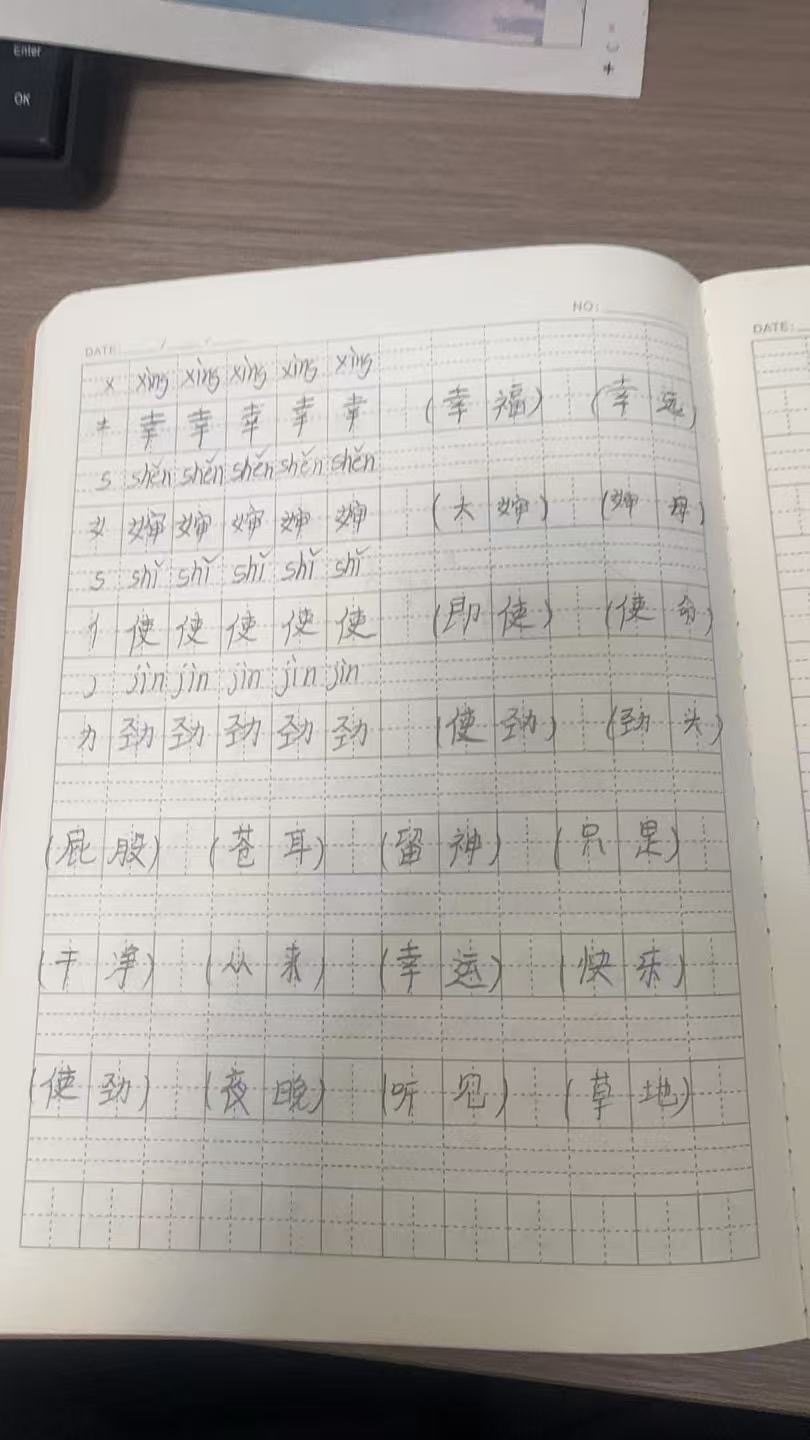 Enter
OK
NO:
DATE:
DATE:
x xìng xìng xìng xìng xìng
土 幸 幸 幸 幸 幸 (幸福) (幸运)
s shěn shěn shěn shěn shěn
女 婶 婶 婶 婶 婶 (大婶) (婶母)
s shǐ shǐ shǐ shǐ shǐ
亻 使 使 使 使 使 (即使) (使命)
j jìn jìn jìn jìn jìn
力 劲 劲 劲 劲 劲 (使劲) (劲头)
(屁股) (苍耳) (留神) (只是)
(干净) (从来) (幸运) (快乐)
(使劲) (夜晚) (听见) (草地)